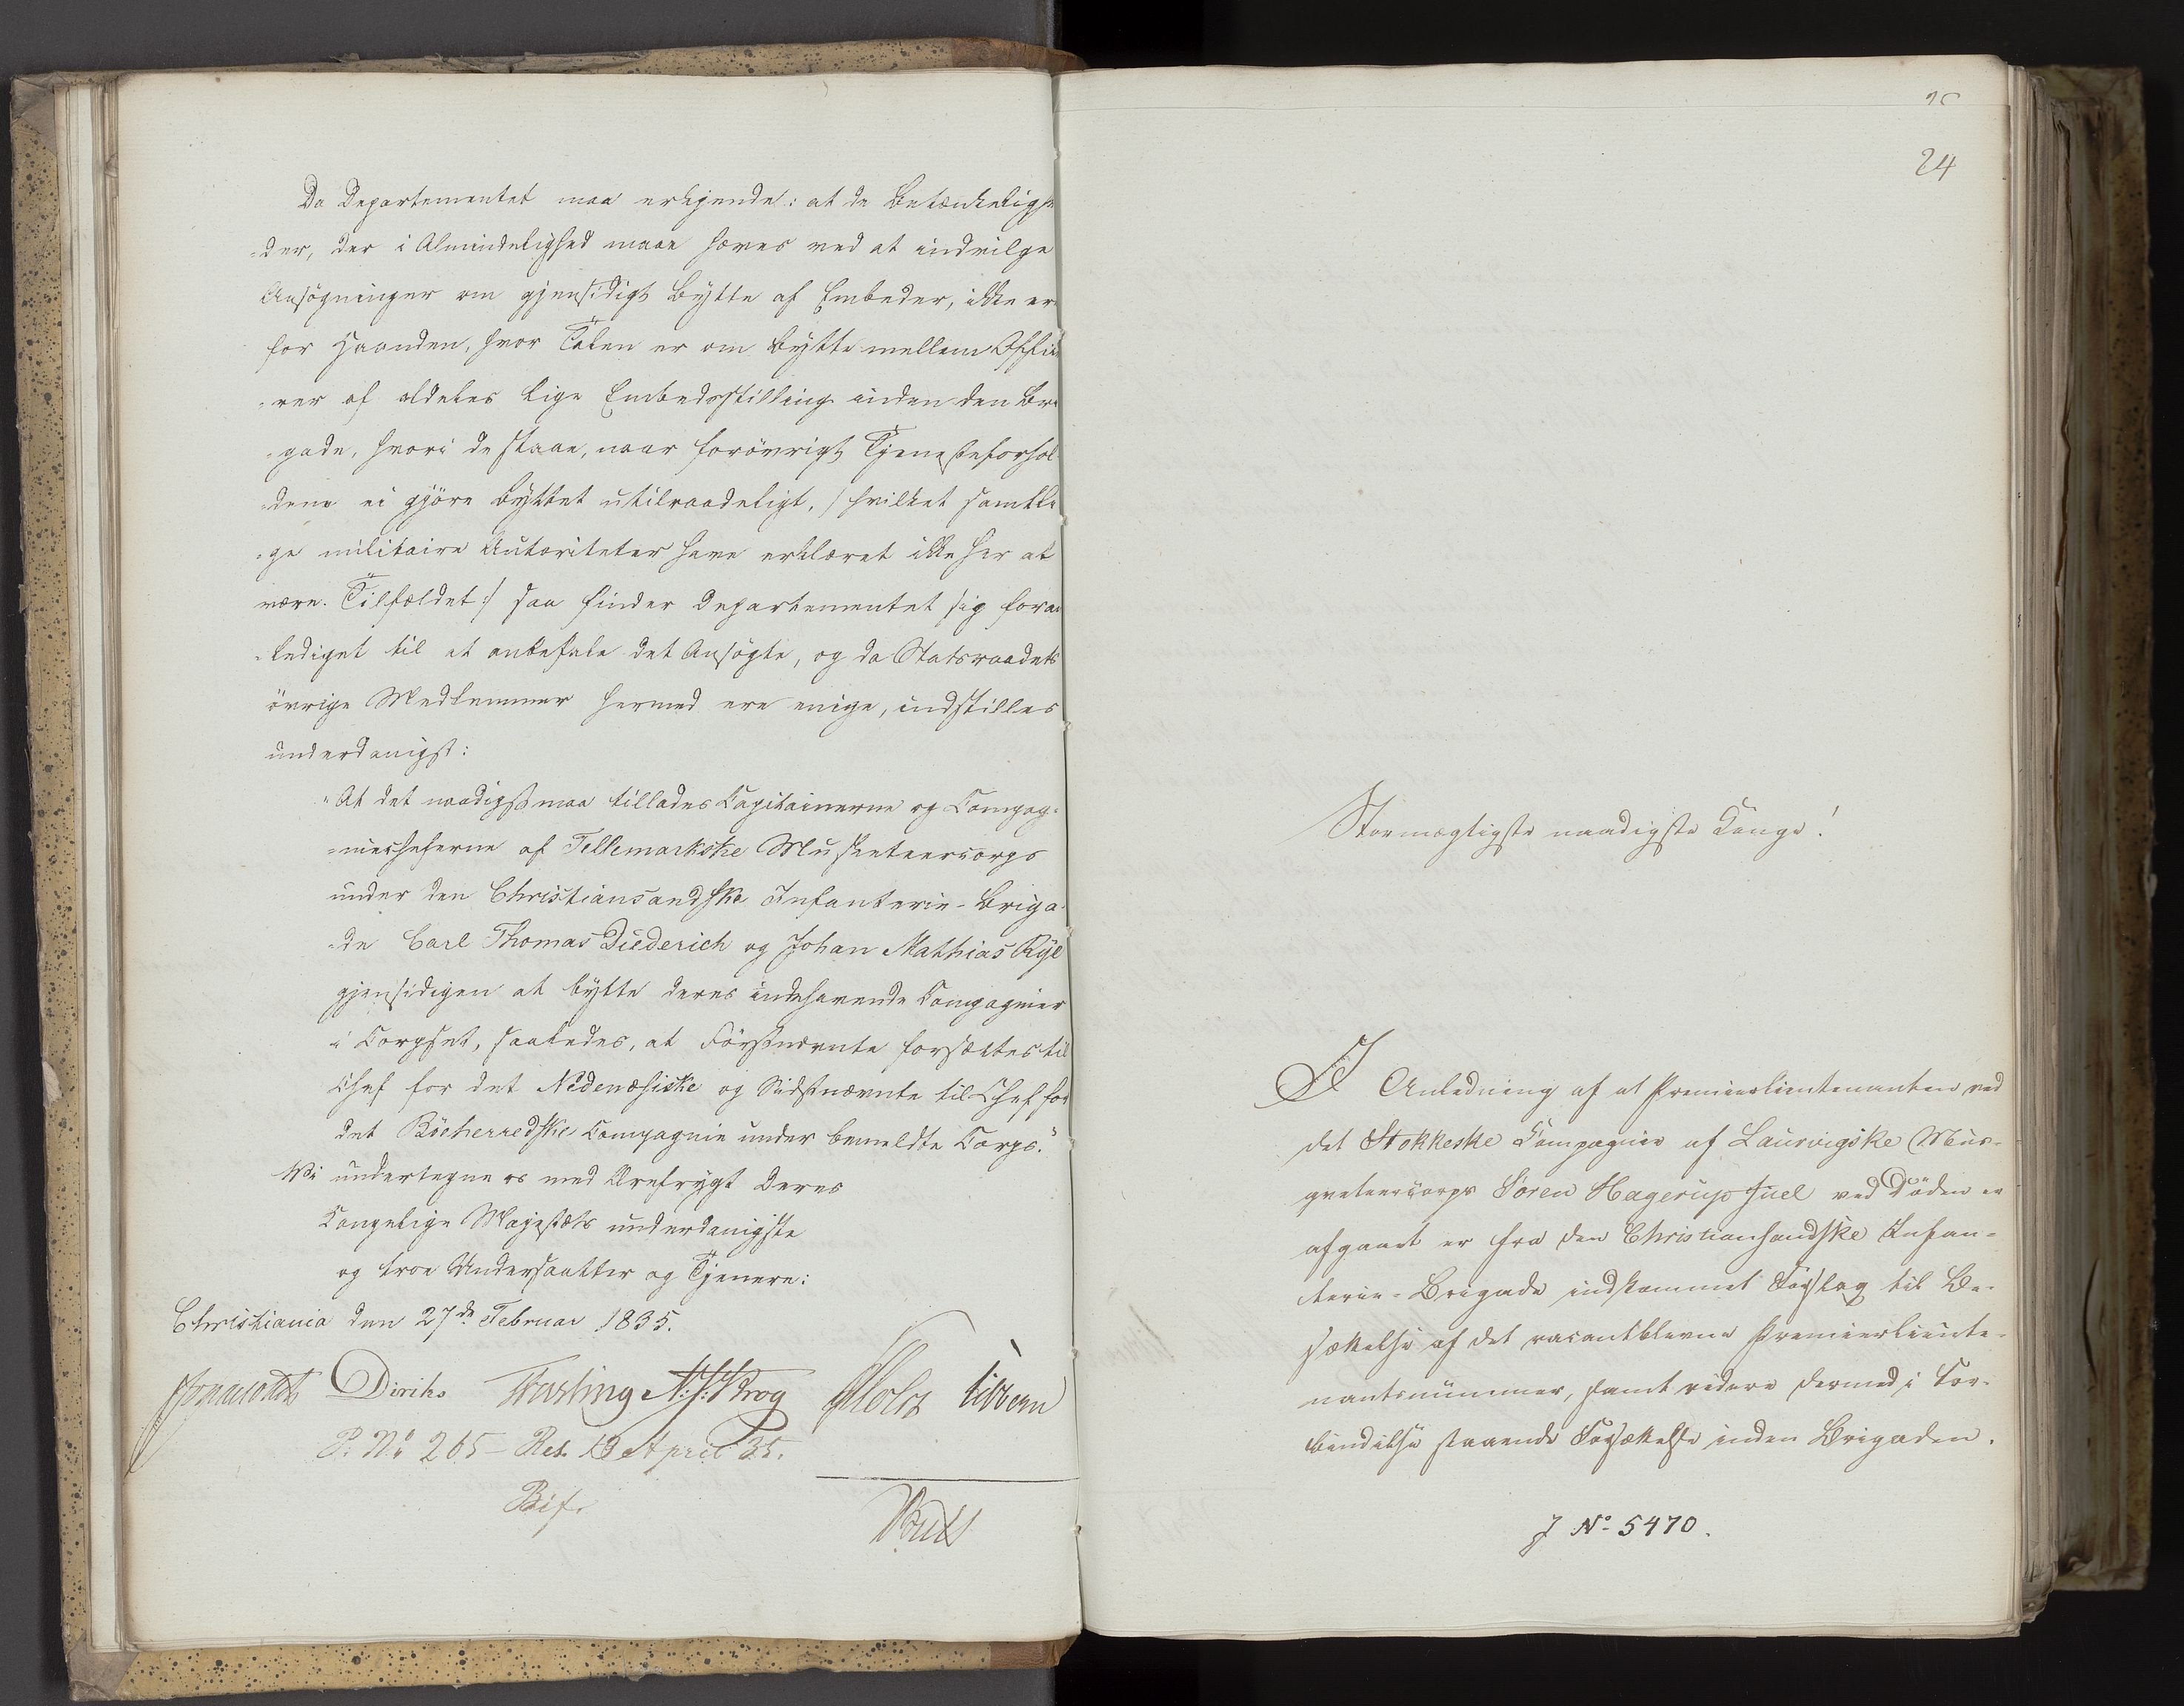 Da Departementet maa erkjende: at de Betænkelighe
-der, der i Almindelighed maae haves ved at indvilge
Ansøgninger om gjensidigt Bytte af Embeder, ikke er
for Haanden, hvor Talen er om Bytte mellem Offici
-rer af aldeles lige Embedsstilling inden den Bri
-gade, hvori de staae, naar forövrigt Tjenesteforhol
-dene ei gjöre Byttet utilraadeligt, /: hvilket samtli
-ge militaire Autoriteter have erklæret ikke her at
være Tilfældet :/ saa finder Departementet sig foran
-lediget til at anbefale det Ansögte, og da Statsraadets
övrige Medlemmer hermed ere enige, indstilles
underdanigst:
"At det naadigst maa tillades Capitainerne og Compag-
-niecheferne af Tellemarkske Musketeercorps
under den Christiansandske Infanterie-Briga-
-de Carl Thomas Diederich og Johan Mathias Rye
gjensidigen at bytte deres indehavende Compagnier
i Corpset, saaledes, at Förstnævnte forsættes til
Chef for det Nedenæsiske og Sidstnævnte til Chef for
det Böeherredske Compagnie under bemeldte Corps."
Vi undertegne os med Ærefrygt Deres
Kongelige Majestæts underdanigste
og troe Undersaatter og Tjenere:
Christiania den 27de Februar 1835.
Diriks Fasting Krog Holst Vibe
P. No 265 - Res. 13 April 35.
Bif.
24
Stormægtigste naadigste Konge!
I Anledning af at Premierlieutenanten ved
det Stokkeske Compagnie af Laurvigske Mus-
qveteercorps Sören Hagerup Juel ved Döden er
afgaaet er fra den Christiansandske Infan-
terie-Brigade indkommet Forslag til Be-
sættelse af det vacantblevne Premierlieute-
nantsnummer, samt videre dermed i For-
bindelse staaende Forsættelse inden Brigaden.
J No 5470.